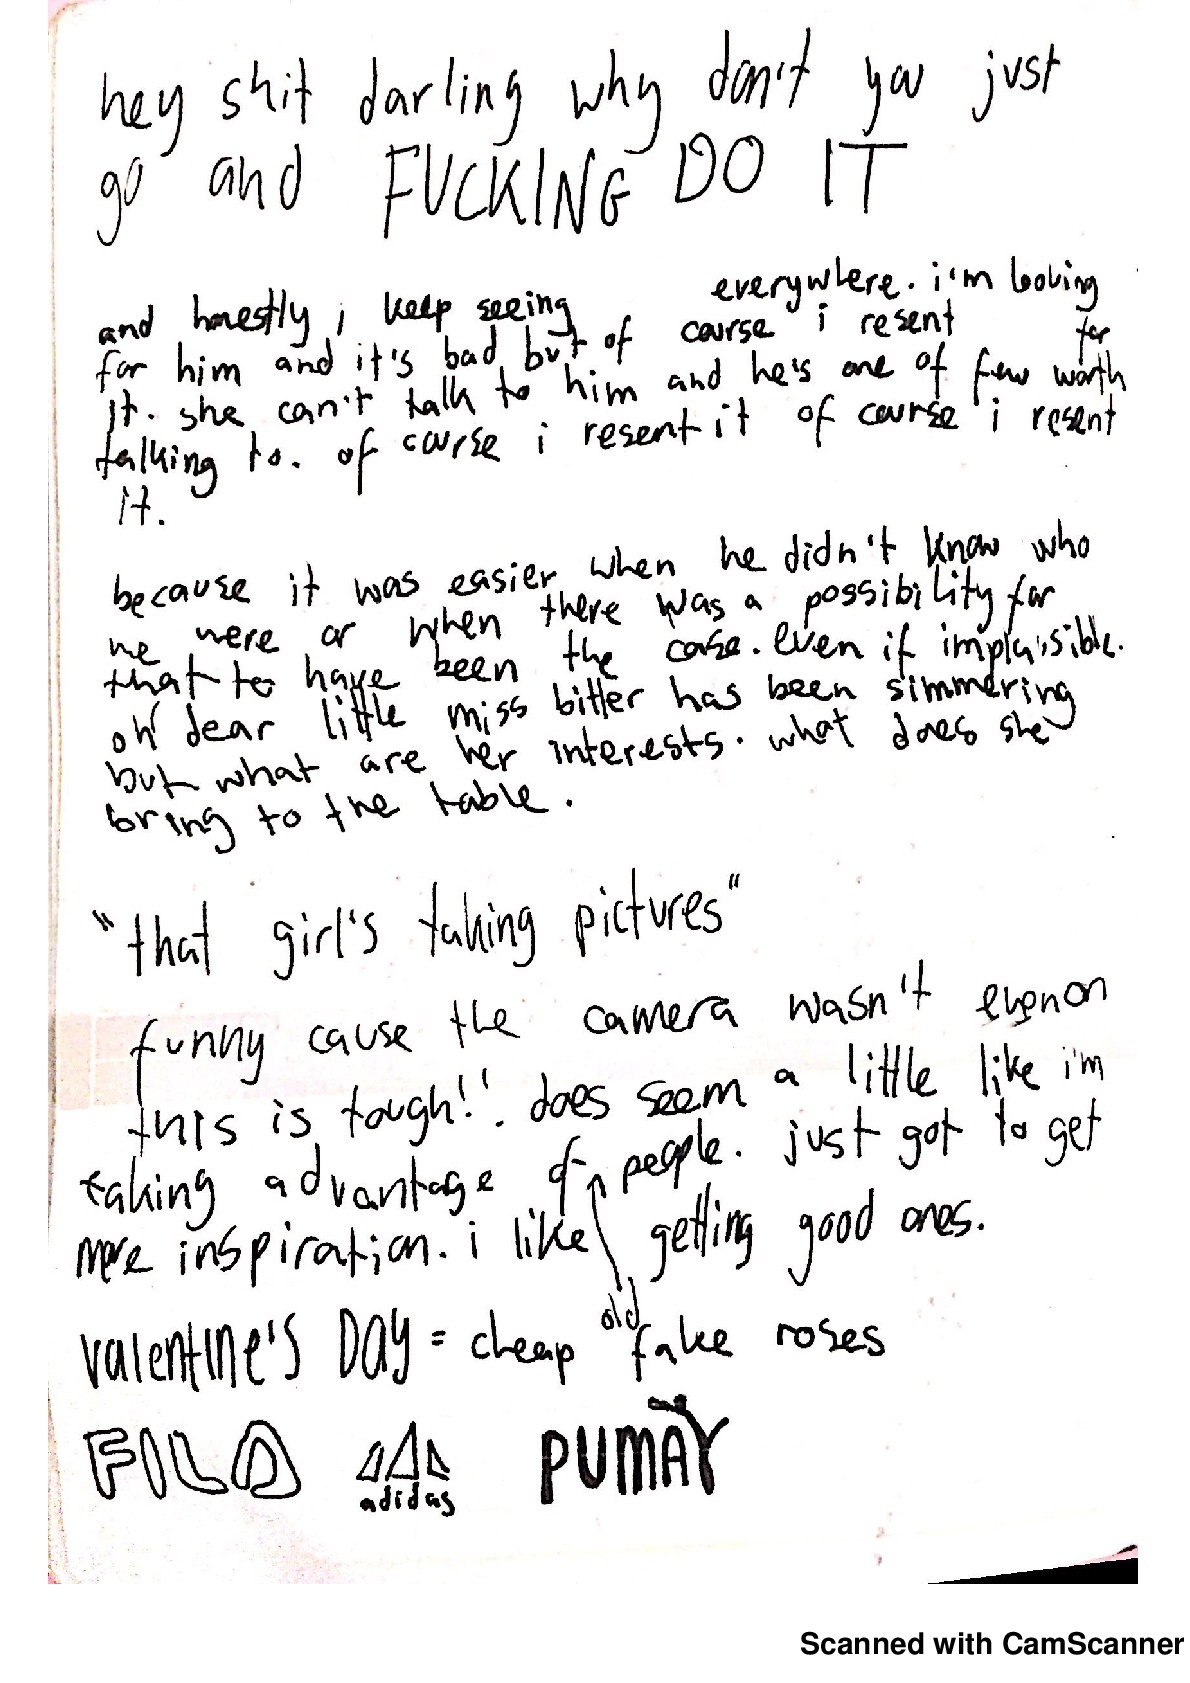 hey shit darling why don't you just
go and FUCKING DO IT
and honestly i keep seeing everywhere. i'm looking
for him and it's bad but of course i resent for
it. she can't talk to him and he's one of few worth
talking to. of course i resent it of course i resent
it.
because it was easier when he didn't know who
we were or when there was a possibility for
that to have been the case. even if implausible.
oh dear little miss bitter has been simmering
but what are her interests. what does she
bring to the table.
"that girl's taking pictures"
funny cause the camera wasn't even on
this is tough!!. does seem a little like i'm
taking advantage of people. just got to get
more inspiration. i like getting good ones.
valentine's DAY = cheap old fake roses
FILA adidas PUMA
Scanned with CamScanner